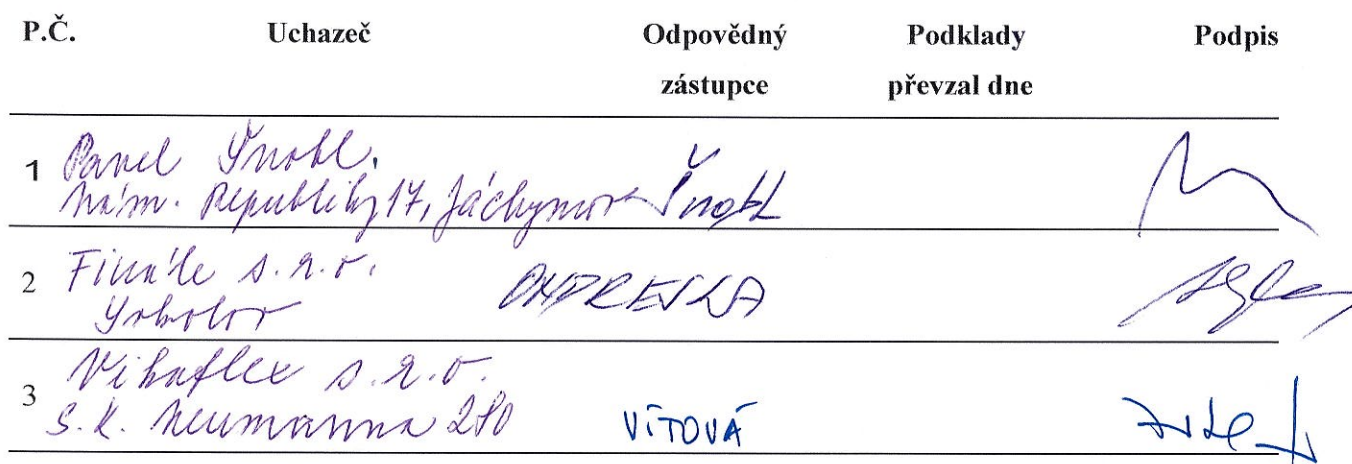 P.Č. Uchazeč Odpovědný zástupce Podklady převzal dne Podpis
1 Pavel Šnobl,
Nám. Republiky 17, Jáchymov Šnobl
2 Finále s.r.o. ONDREJKA
Sokolov
3 Vihaflex s.r.o.
S.K. Neumanna 280 VÍTOVÁ